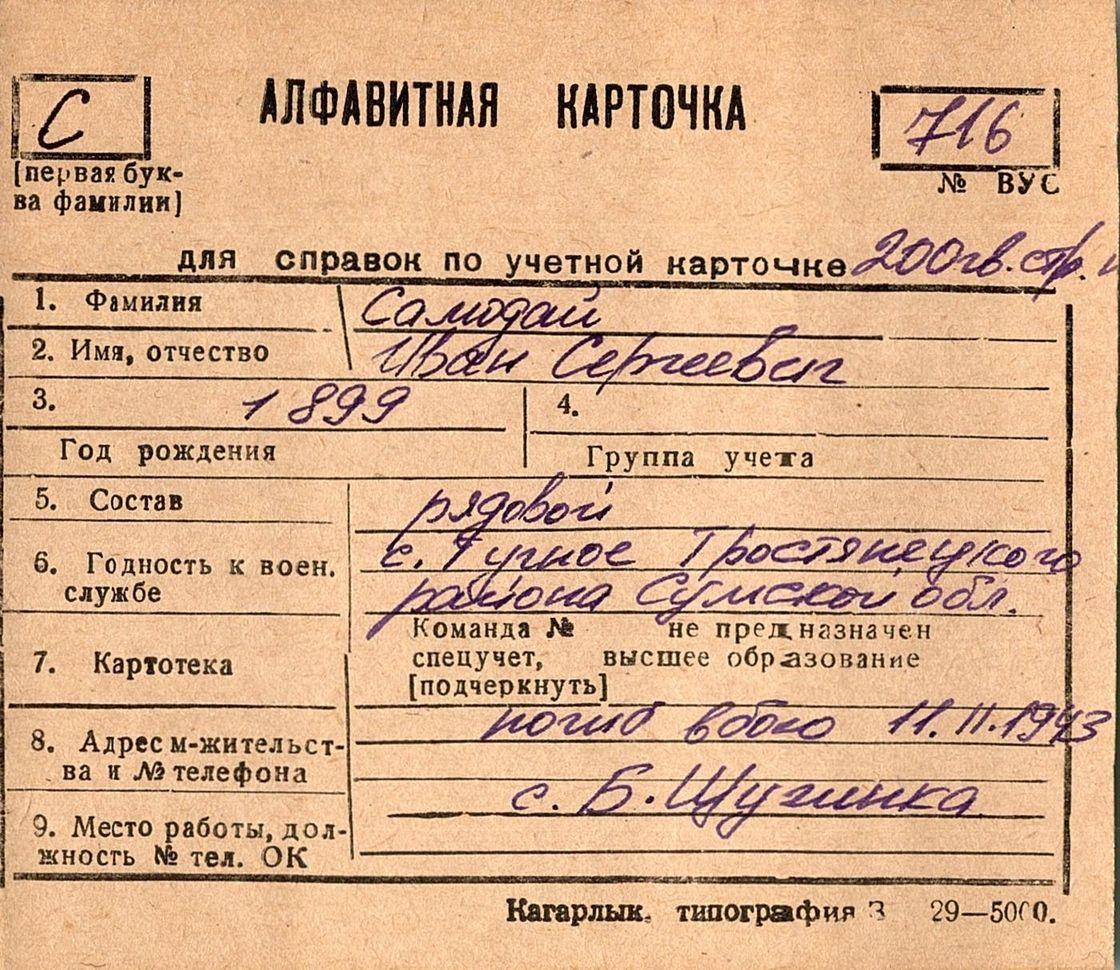 С
АЛФАВИТНАЯ КАРТОЧКА
716
[первая бук-
ва фамилии]
№ ВУС
для справок по учетной карточке 200 гв. стр.
1. Фамилия Самодай
2. Имя, отчество Иван Сергеевич
3. 1899 4.
Год рождения Группа учета
5. Состав рядовой
6. Годность к воен. с. Тучное Тростянецкого
службе района Сумской обл.
Команда № не предназначен
7. Картотека спецучет, высшее образование
[подчеркнуть]
погиб в бою 11.11.1943
8. Адрес м-жительст-
ва и № телефона
с. Б. Щучинка
9. Место работы, дол-
жность № тел. ОК
Кагарлык, типография З 29—5000.